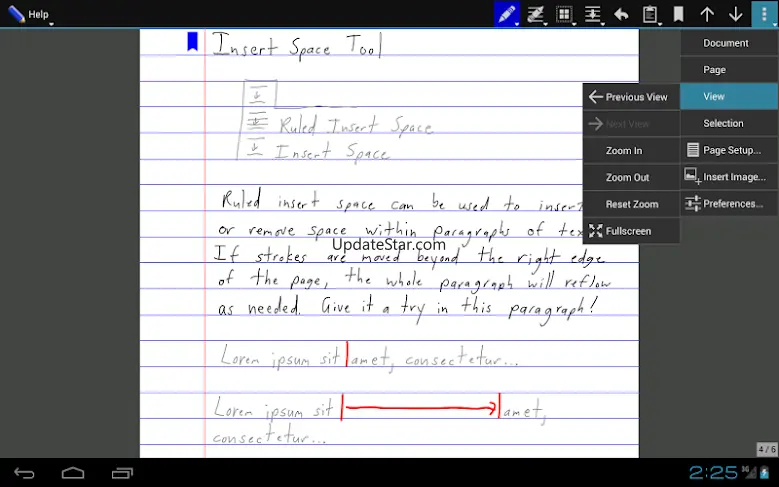 Help
Document
Page
View
Selection
Page Setup...
Insert Image...
Preferences...
Previous View
Next View
Zoom In
Zoom Out
Reset Zoom
Fullscreen
Insert Space Tool
Ruled Insert Space
Insert Space
Ruled insert space can be used to insert
or remove space within paragraphs of text
UpdateStar.com
If strokes are moved beyond the right edge
of the page, the whole paragraph will reflow
as needed. Give it a try in this paragraph!
Lorem ipsum sit amet, consectetur...
Lorem ipsum sit amet,
consectetur...
4/6
2:25
3G